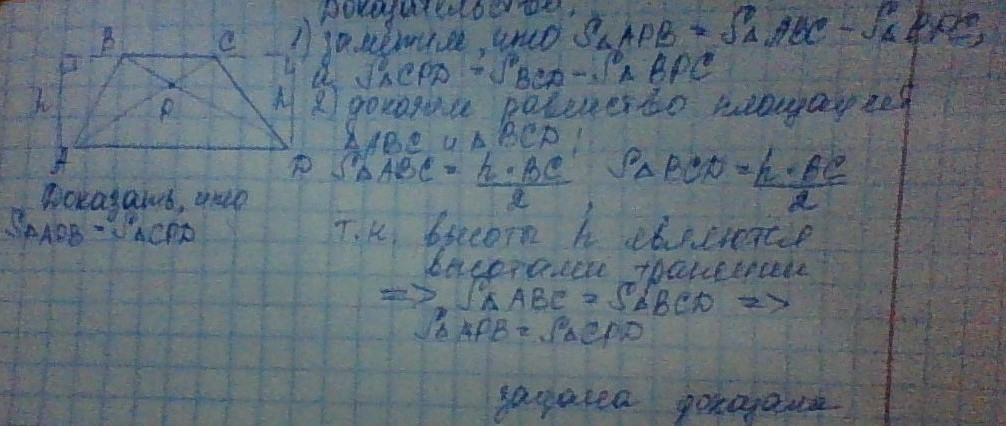 Доказательство.
1) заметим, что S△APB = S△ABC - S△BPC,
а S△CPD = SBCD - S△BPC
2) докажем равенство площадей
△ABC и △BCD!
S△ABC = h·BC/2, S△BCD = h·BC/2
т.к. высоты h являются
высотами трапеции
=> S△ABC = S△BCD =>
S△APB = S△CPD
задача доказана
B C
h P h
A D
Доказать, что
S△APB = S△CPD